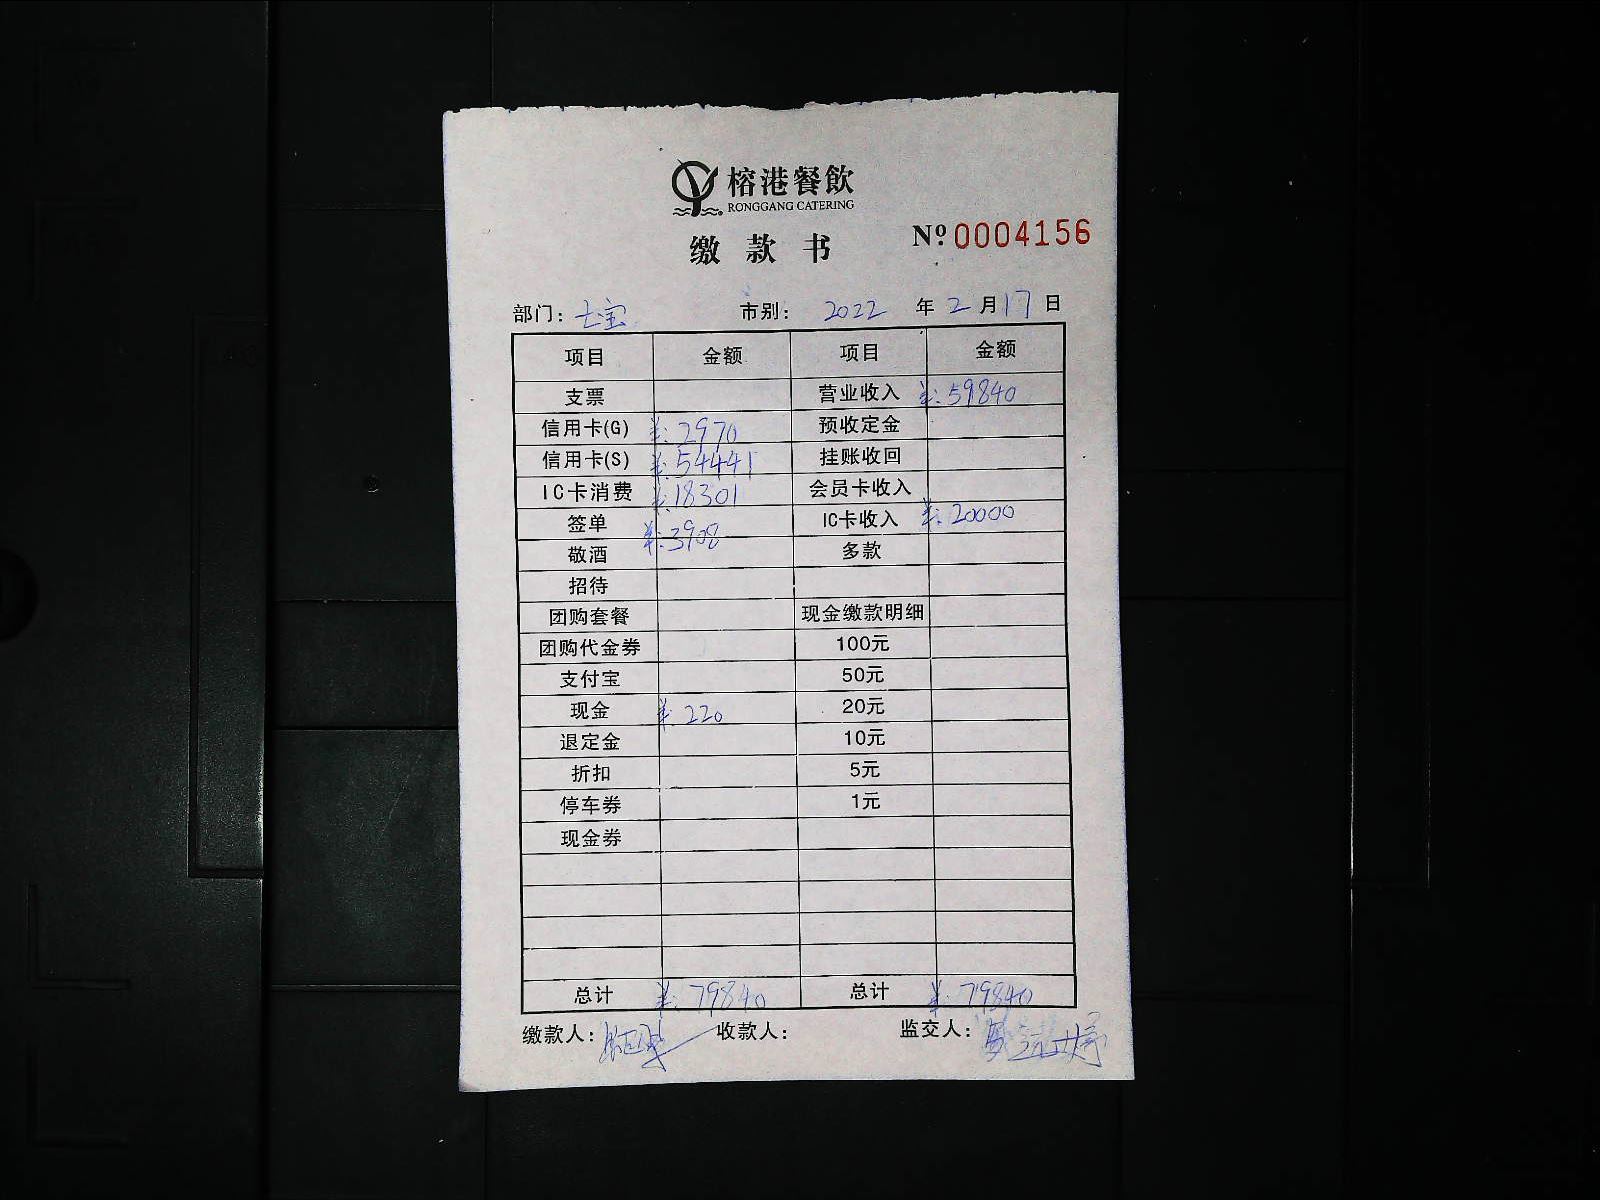 榕港餐飲
RONGGANG CATERING
缴款书 Nº 0004156
部门: 七宝 市别: 2022 年 2 月 17 日
项目 金额 项目 金额
支票 营业收入 ¥:59840
信用卡(G) ¥:2970 预收定金
信用卡(S) ¥:54441 挂账收回
IC卡消费 ¥:18301 会员卡收入
签单 ¥:3908 IC卡收入 ¥:20000
敬酒 多款
招待
团购套餐 现金缴款明细
团购代金券 100元
支付宝 50元
现金 ¥:220 20元
退定金 10元
折扣 5元
停车券 1元
现金券
总计 ¥:79840 总计 ¥:79840
缴款人: 收款人: 监交人: